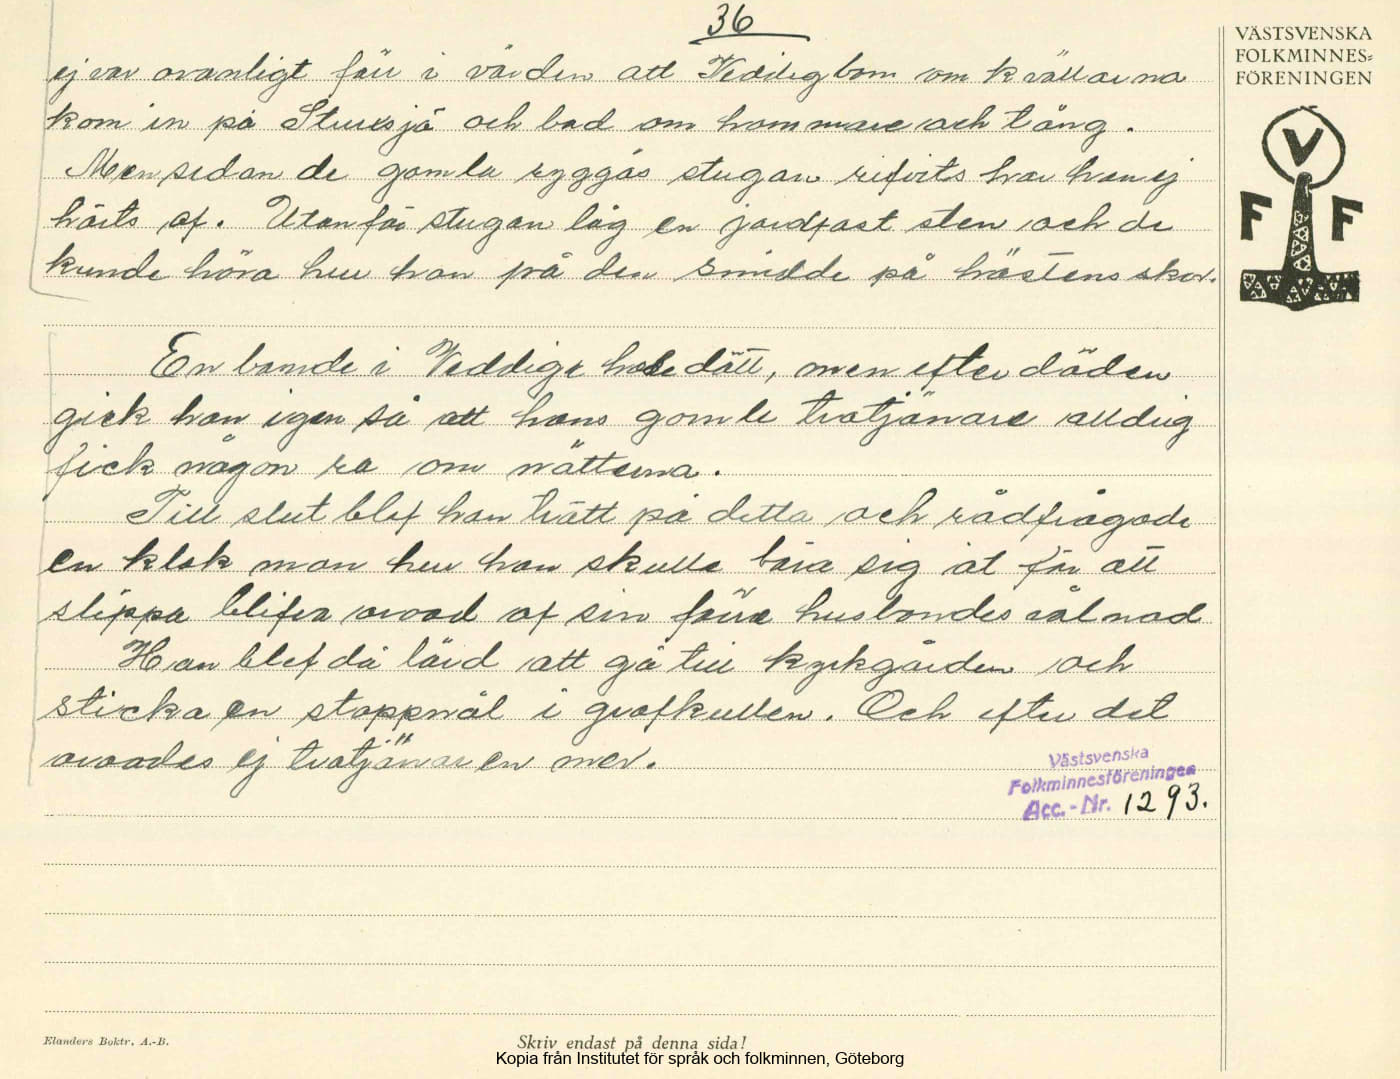 36
VÄSTSVENSKA
FOLKMINNES=
FÖRENINGEN
ej var ovanligt förr i värden att Veddigbom om kvällarna
kom in på Stuxsjö och bad om hammare och tång.
Men sedan de gamla ryggås stugan rifvits har han ej
hörts af. Utanför stugan låg en jordfast sten och de
kunde höra hur han på den smidde på hästens skor.
En bonde i Veddige hade dött, men efter döden
gick han igen så att hans gamle trotjänare alldrig
fick någon ro om nätterna.
Till slut blef han trött på detta och rådfrågade
en klok man hur han skulle bära sig åt för att
slippa blifva oroad af sin förre husbondes vålnad
Han blef då lärd att gå till kyrkgården och
sticka en stoppnål i grafkullen. Och efter det
oroades ej trotjänaren mer.
Västsvenska
Folkminnesföreningen
Acc.-Nr. 1293.
V
F F
Elanders Boktr. A.-B.
Skriv endast på denna sida!
Kopia från Institutet för språk och folkminnen, Göteborg